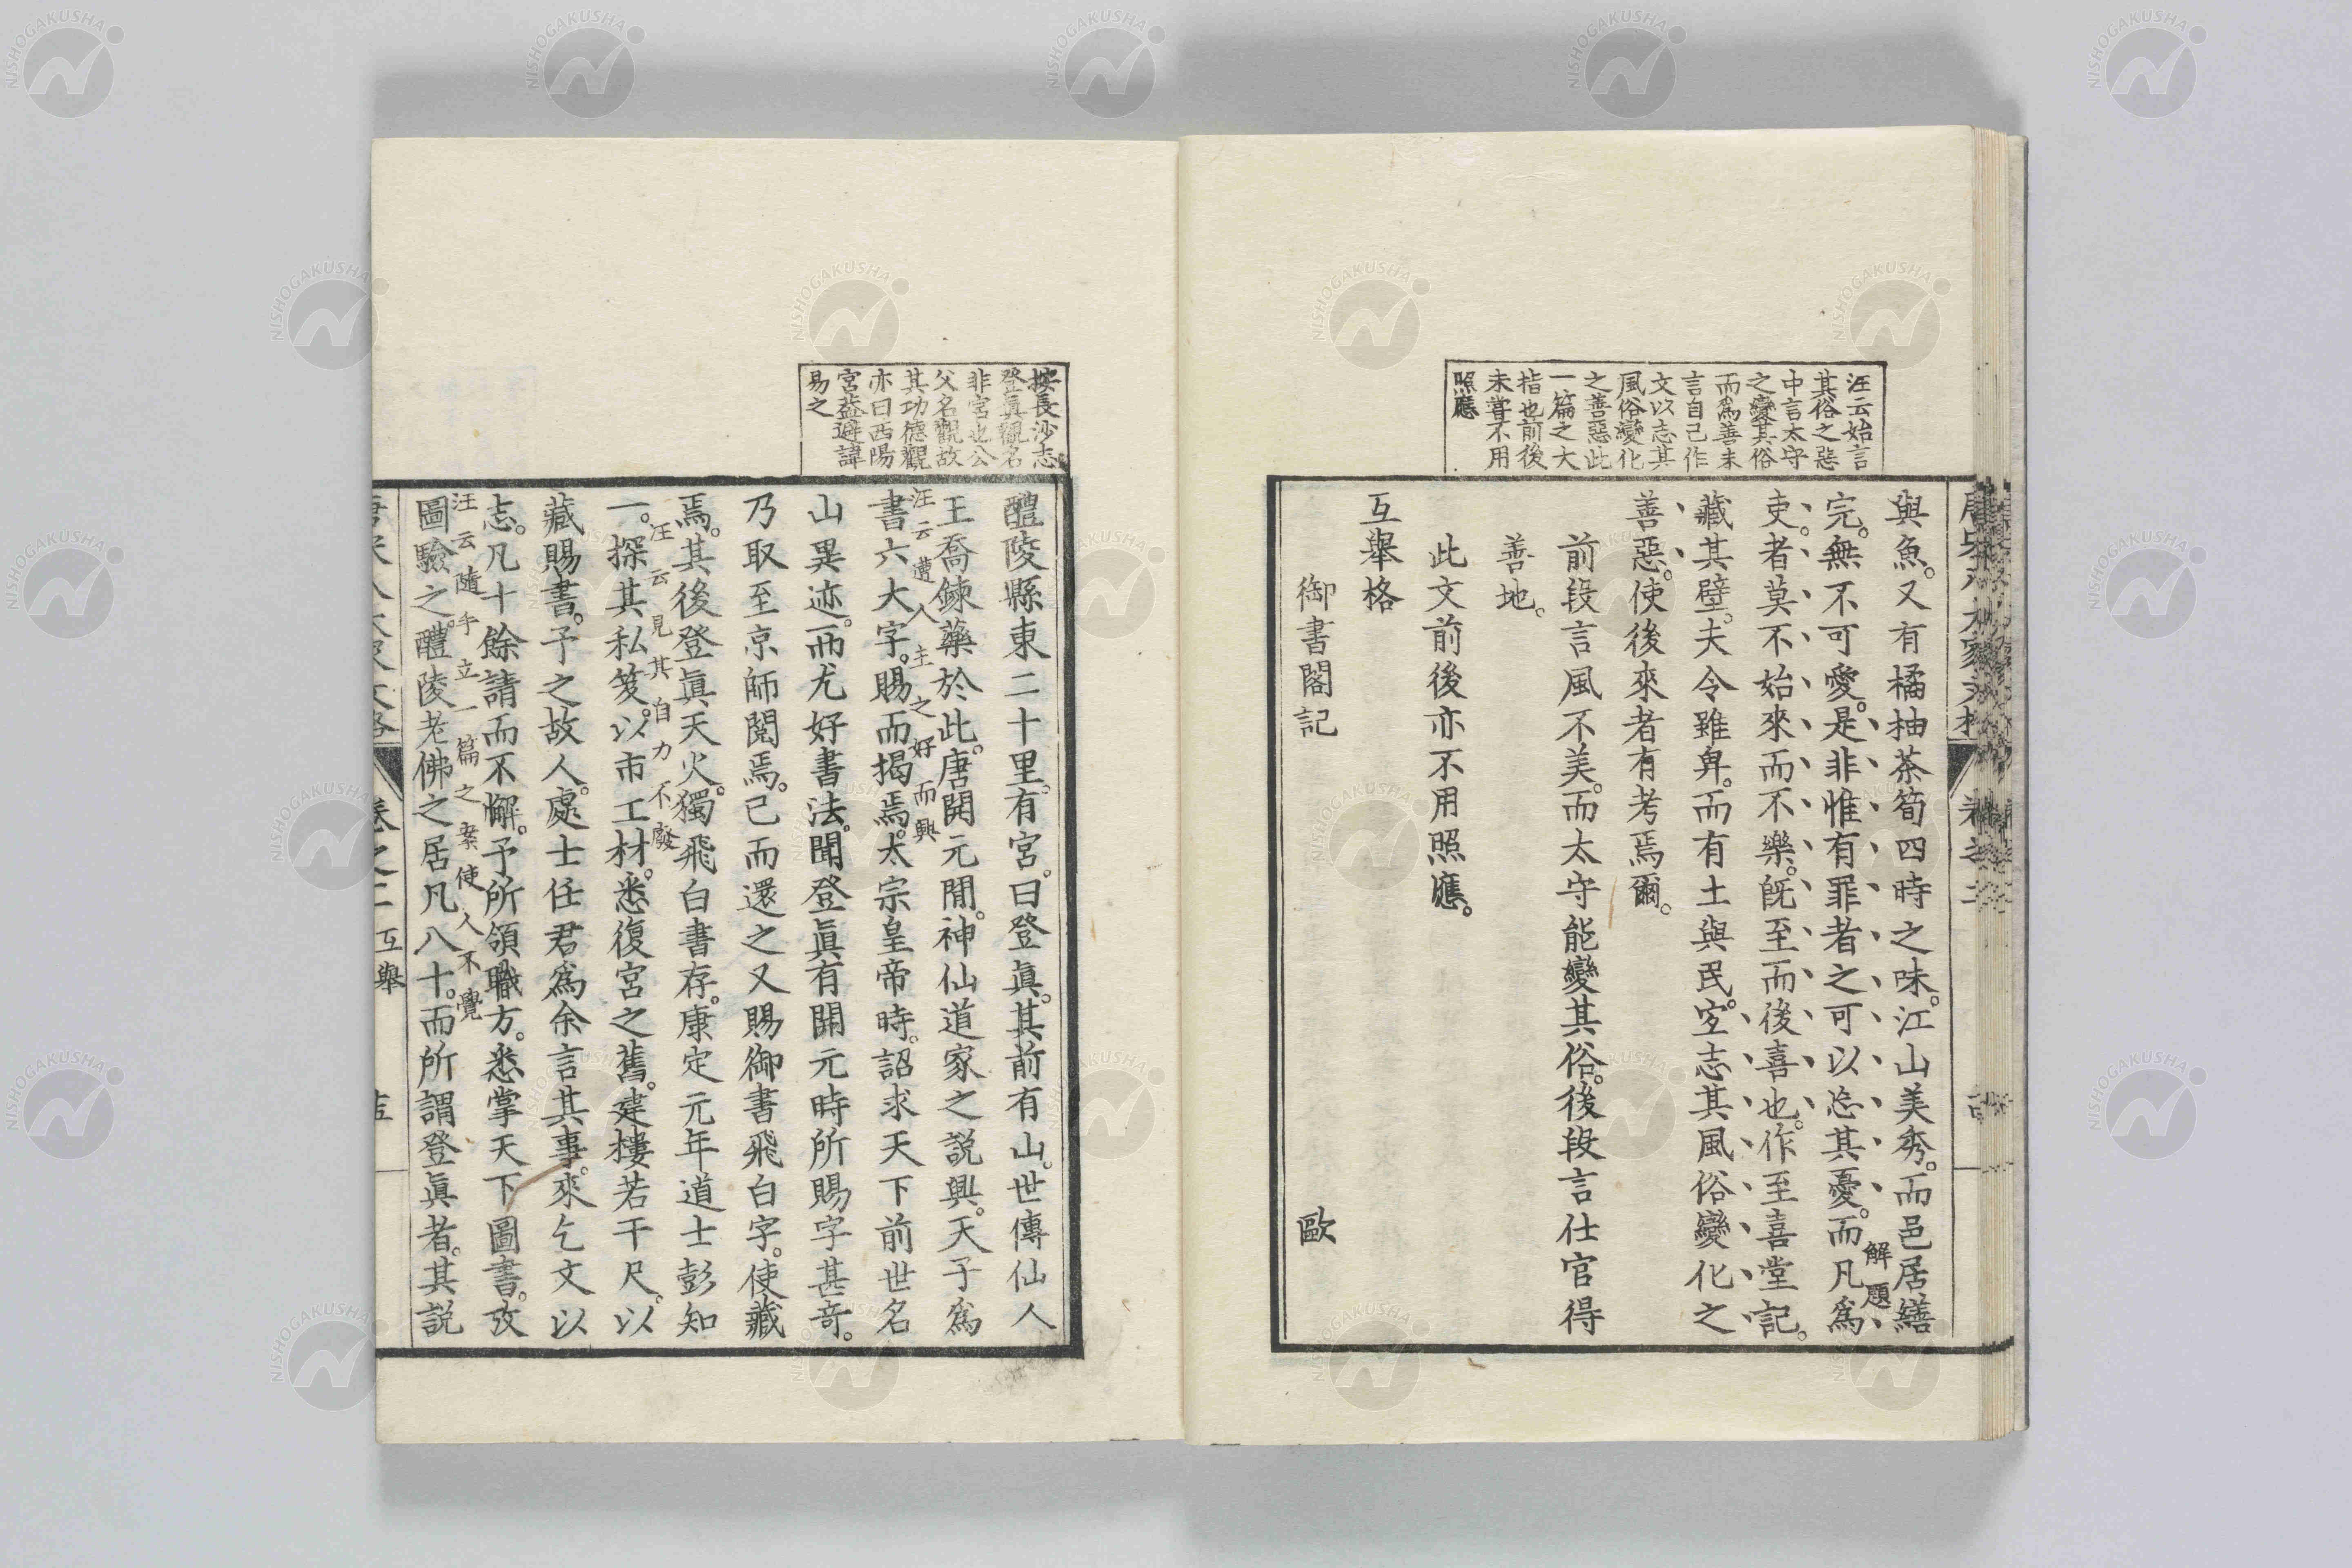 汪云始言
其俗之惡
中言太守
之變其俗
而爲善末
言自己作
文以志其
風俗變化
之善惡此
一篇之大
指也前後
未嘗不用
照應
與魚。又有橘柚茶筍四時之味。江山美秀。而邑居繕
完。無不可愛。是非惟有罪者之可以忘其憂。而凡爲
解題
吏。者莫不始來而不樂。既至而後喜也。作至喜堂記。
藏其壁。夫令雖卑。而有土與民。宜志其風俗變化之
善惡。使後來者有考焉爾。
前段言風不美。而太守能變其俗。後段言仕官得
善地。
此文前後亦不用照應。
互舉格
御書閣記 歐
按長沙志
登眞觀名
非宮也公
父名觀故
其功德觀
亦曰西陽
宮益避諱
易之
醴陵縣東二十里。有宮。曰登眞。其前有山。世傳仙人
王喬鍊藥於此。唐開元閒。神仙道家之説興。天子爲
汪云遭人主之好而興
書六大字。賜而揭焉。太宗皇帝時。詔求天下前世名
山異迹。而尤好書法。聞登眞有開元時所賜字甚奇。
乃取至京師閲焉。已而還之又賜御書飛白字。使藏
焉。其後登眞天火。獨飛白書存。康定元年道士彭知
汪云見其自力不廢
一。探其私笈。以市工材。悉復宮之舊。建樓若干尺。以
藏賜書。予之故人。處士任君爲余言其事。來乞文以
志。凡十餘請而不懈。予所領職方。悉掌天下圖書。攷
汪云隨手立一篇之案使人不覺
圖驗之。醴陵老佛之居凡八十。而所謂登眞者。其説
卷之二 互舉
NISHOGAKUSHA